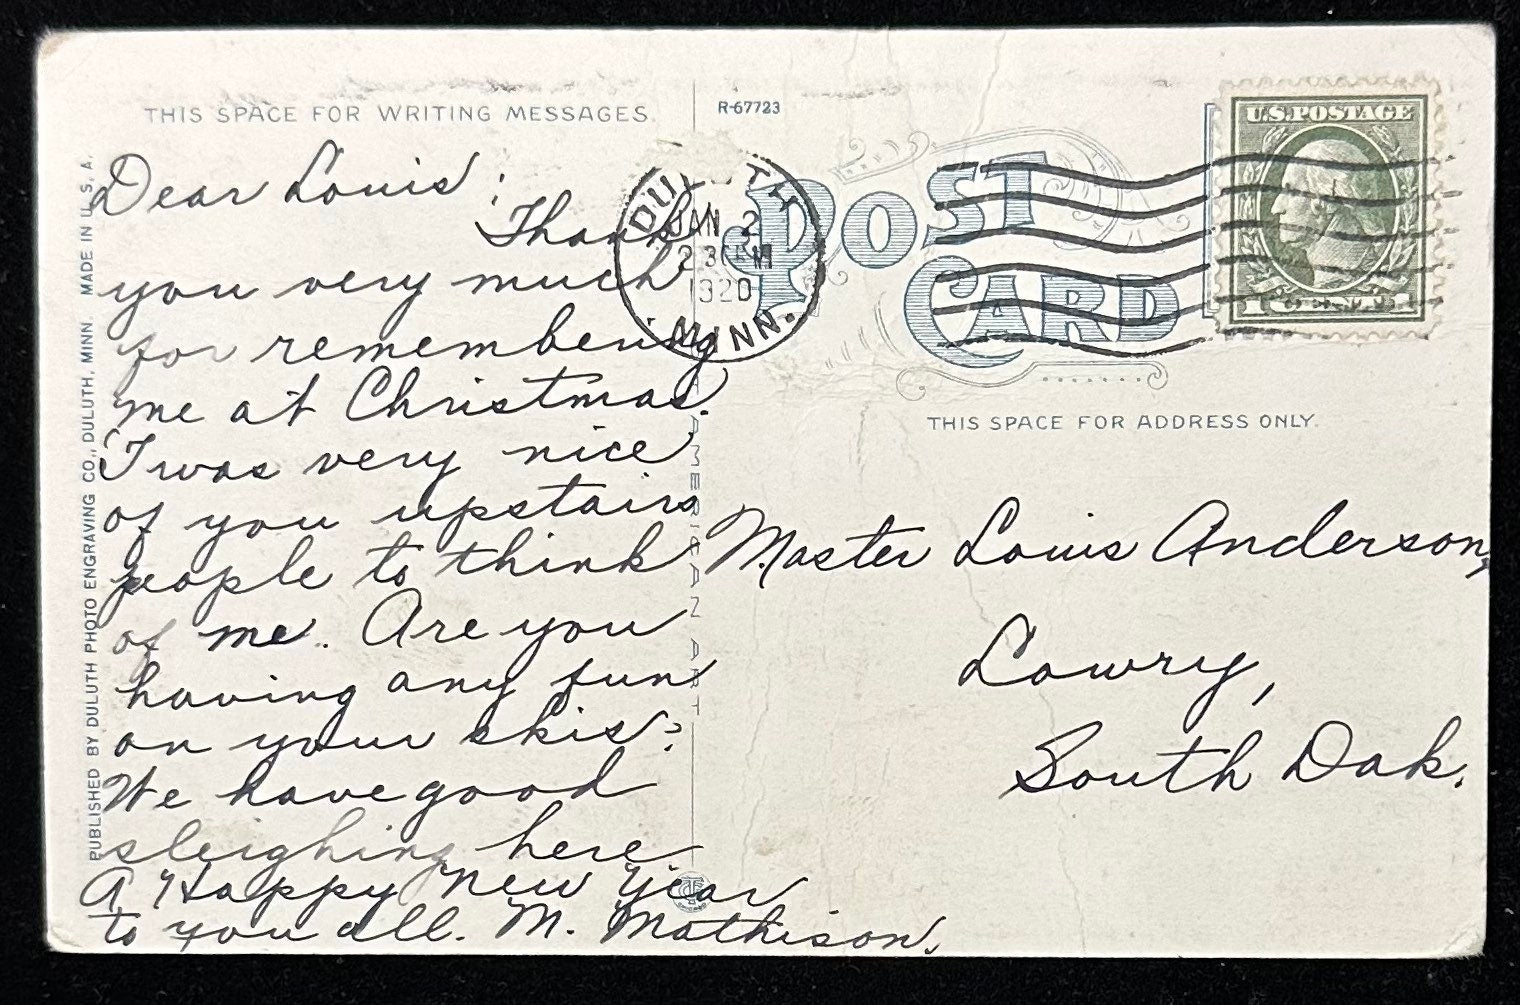 THIS SPACE FOR WRITING MESSAGES.
R-67723
POST
CARD
U.S.POSTAGE
DULUTH
JAN 2
1920
MINN.
THIS SPACE FOR ADDRESS ONLY.
PUBLISHED BY DULUTH PHOTO ENGRAVING CO., DULUTH, MINN. MADE IN U.S.A.
AMERICAN ART
Dear Louis:
Thank
you very much
for remembering
me at Christmas.
'Twas very nice
of you upstairs
people to think
of me. Are you
having any fun
on your skis?
We have good
sleighing here
A Happy New Year
to you all. M. Mathison.
Master Louis Anderson,
Lowry,
South Dak.